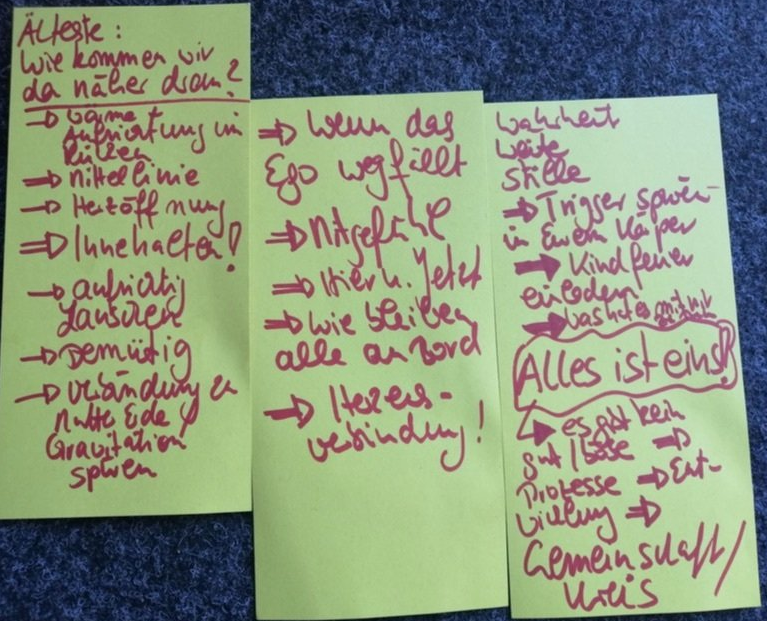 Älteste:
wie kommen wir
da näher dran?
→ Wärme
Aufrichtung im
Rücken
⇒ Mittellinie
→ Herzöffnung
⇒ Innehalten!
→ aufrichtig
Lauschen
→ Demütig
→ Verbindung zu
Mutter Erde /
Gravitation
spüren
⇒ Wenn das
Ego wegfällt
⇒ Mitgefühl
⇒ Hier u. Jetzt
⇒ Wie bleiben
alle an Bord
⇒ Herzens-
verbindung!
Wahrheit
Weite
Stille
⇒ Trigger spüren
in Eurem Körper
→ Kindfeuer
einladen
→ was hat es mit mir
Alles ist eins!
→ es gibt kein
gut / böse ⇒
Prozesse ⇒ Ent-
wicklung ⇒
Gemeinschaft /
Kreis